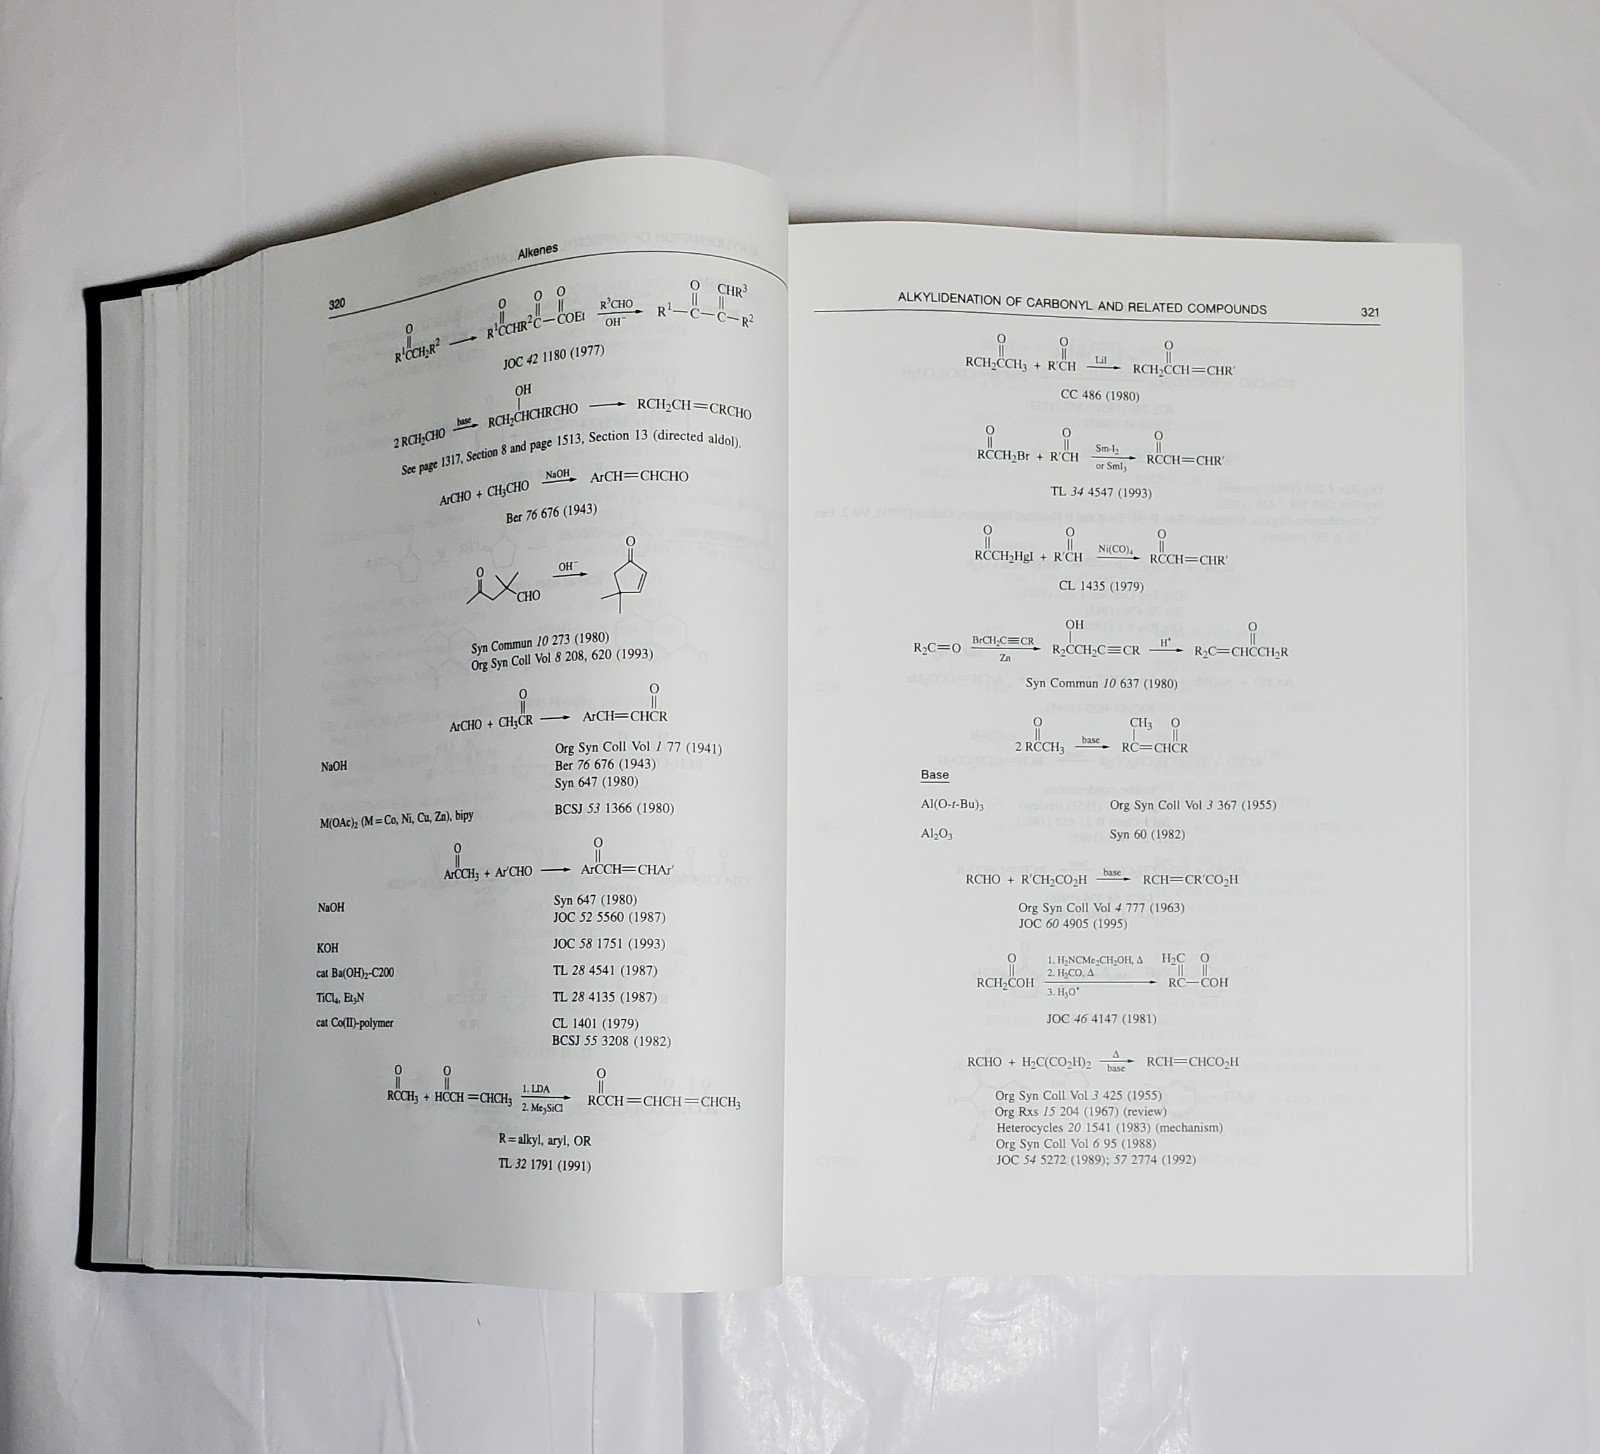 320
Alkenes
O O O O O CHR³
R¹CCH₂R² ⟶ R¹CCHR²C—COEt R³CHO OH⁻ R¹—C—C—R²
JOC 42 1180 (1977)
OH
2 RCH₂CHO base RCH₂CHCHRCHO ⟶ RCH₂CH=CRCHO
See page 1317, Section 8 and page 1513, Section 13 (directed aldol).
ArCHO + CH₃CHO NaOH ArCH=CHCHO
Ber 76 676 (1943)
O CHO OH⁻ O
Syn Commun 10 273 (1980)
Org Syn Coll Vol 8 208, 620 (1993)
O O
ArCHO + CH₃CR ⟶ ArCH=CHCR
NaOH Org Syn Coll Vol 1 77 (1941)
Ber 76 676 (1943)
Syn 647 (1980)
M(OAc)₂ (M=Co, Ni, Cu, Zn), bipy BCSJ 53 1366 (1980)
O O
ArCCH₃ + Ar'CHO ⟶ ArCCH=CHAr'
NaOH Syn 647 (1980)
JOC 52 5560 (1987)
KOH JOC 58 1751 (1993)
cat Ba(OH)₂-C200 TL 28 4541 (1987)
TiCl₄, Et₃N TL 28 4135 (1987)
cat Co(II)-polymer CL 1401 (1979)
BCSJ 55 3208 (1982)
O O O
RCCH₃ + HCCH=CHCH₃ 1. LDA 2. Me₃SiCl RCCH=CHCH=CHCH₃
R=alkyl, aryl, OR
TL 32 1791 (1991)
ALKYLIDENATION OF CARBONYL AND RELATED COMPOUNDS 321
O O O
RCH₂CCH₃ + R'CH LiI RCH₂CCH=CHR'
CC 486 (1980)
O O O
RCCH₂Br + R'CH Sm-I₂ or SmI₃ RCCH=CHR'
TL 34 4547 (1993)
O O O
RCCH₂HgI + R'CH Ni(CO)₄ RCCH=CHR'
CL 1435 (1979)
OH O
R₂C=O BrCH₂C≡CR Zn R₂CCH₂C≡CR H⁺ R₂C=CHCCH₂R
Syn Commun 10 637 (1980)
O CH₃ O
2 RCCH₃ base RC=CHCR
Base
Al(O-t-Bu)₃ Org Syn Coll Vol 3 367 (1955)
Al₂O₃ Syn 60 (1982)
RCHO + R'CH₂CO₂H base RCH=CR'CO₂H
Org Syn Coll Vol 4 777 (1963)
JOC 60 4905 (1995)
O 1. H₂NCMe₂CH₂OH, Δ H₂C O
RCH₂COH 2. H₂CO, Δ RC—COH
3. H₃O⁺
JOC 46 4147 (1981)
RCHO + H₂C(CO₂H)₂ Δ base RCH=CHCO₂H
Org Syn Coll Vol 3 425 (1955)
Org Rxs 15 204 (1967) (review)
Heterocycles 20 1541 (1983) (mechanism)
Org Syn Coll Vol 6 95 (1988)
JOC 54 5272 (1989); 57 2774 (1992)